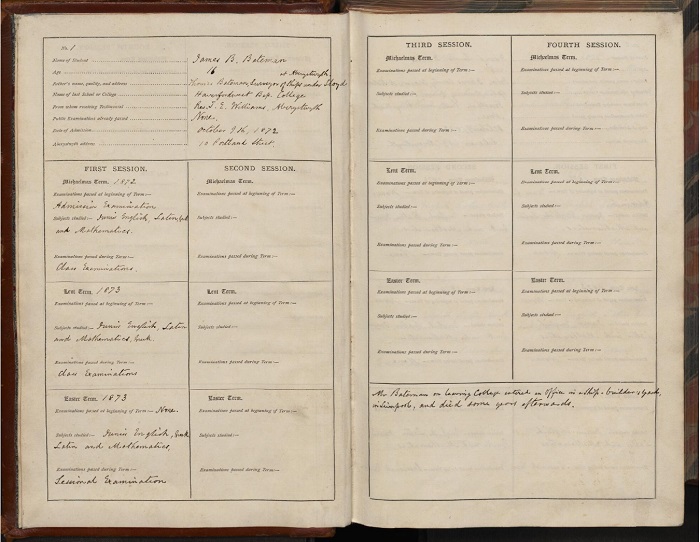 No. 1
Name of Student James B. Bateman
Age 16
at Aberystwyth
Father's name, quality, and address Thomas Bateman, Surveyor of Ships under Lloyd
Name of last School or College Haverfordwest Bap. College
From whom receiving Testimonial Rev. T. E. Williams, Aberystwyth
Public Examinations already passed None.
Date of Admission October 9th, 1872
Aberystwyth address 10 Portland Street
FIRST SESSION.
Michaelmas Term. 1872
Examinations passed at beginning of Term:—
Admission Examination
Subjects studied:— Junior English, Latin
and Mathematics.
Examinations passed during Term:—
Class Examinations.
Lent Term. 1873
Examinations passed at beginning of Term:—
Subjects studied:— Junior English, Latin
and Mathematics, Greek
Examinations passed during Term:—
Class Examinations
Easter Term. 1873
Examinations passed at beginning of Term:— None.
Subjects studied:— Junior English, Greek
Latin and Mathematics.
Examinations passed during Term:—
Sessional Examination
SECOND SESSION.
Michaelmas Term.
Examinations passed at beginning of Term:—
Subjects studied:—
Examinations passed during Term:—
Lent Term.
Examinations passed at beginning of Term:—
Subjects studied:—
Examinations passed during Term:—
Easter Term.
Examinations passed at beginning of Term:—
Subjects studied:—
Examinations passed during Term:—
THIRD SESSION.
Michaelmas Term.
Examinations passed at beginning of Term:—
Subjects studied:—
Examinations passed during Term:—
Lent Term.
Examinations passed at beginning of Term:—
Subjects studied:—
Examinations passed during Term:—
Easter Term.
Examinations passed at beginning of Term:—
Subjects studied:—
Examinations passed during Term:—
FOURTH SESSION.
Michaelmas Term.
Examinations passed at beginning of Term:—
Subjects studied:—
Examinations passed during Term:—
Lent Term.
Examinations passed at beginning of Term:—
Subjects studied:—
Examinations passed during Term:—
Easter Term.
Examinations passed at beginning of Term:—
Subjects studied:—
Examinations passed during Term:—
Mr Bateman on leaving College entered an Office in a Ship-builder's yard,
in Liverpool, and died some years afterwards.